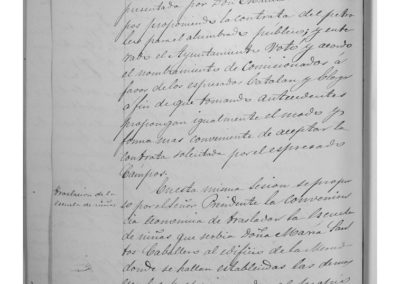 presentada por Don
pos proponiendo la contrata del petro
leo para el alumbrado publico; y ente
rado el Ayuntamiento Votó y acordó
el nombramiento de Comisionados a
favor de los espresados Catalan y
a fin de que tomando Antecedentes
propongan igualmente el modo y
forma mas conveniente de aceptar la
contrata solicitada por el espresado
Campos.
Traslacion de la
escuela de niñas
En esta misma Sesion se propu
so por el Señor Presidente la convenien
cia economica de trasladar la Escuela
de niñas que servia Doña Maria San
tos Caballero al edificio de la
donde se hallan establecidas las demas